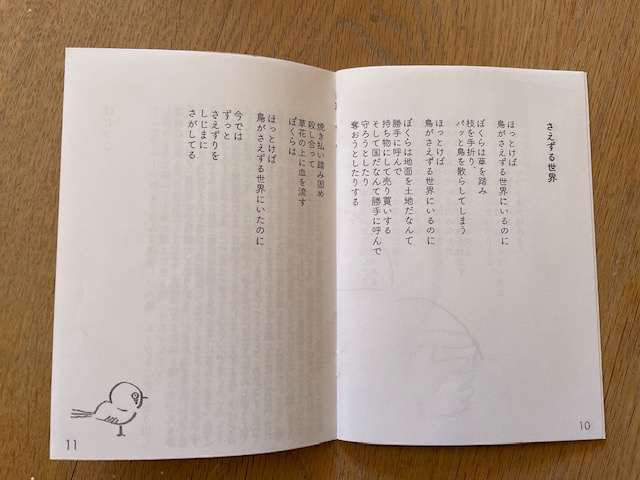 さえずる世界
ほっとけば
鳥がさえずる世界にいるのに
ぼくらは草を踏み
枝を手折り、
パッと鳥を散らしてしまう
ほっとけば
鳥がさえずる世界にいるのに
ぼくらは地面を土地だなんて
勝手に呼んで
持ち物にして売り買いする
そして国だなんて勝手に呼んで
守ろうとしたり
奪おうとしたりする
10
焼き払い踏み固め
殺し合って
草花の上に血を流す
ぼくらは
ほっとけば
鳥がさえずる世界にいたのに
今では
ずっと
さえずりを
しじまに
さがしてる
11